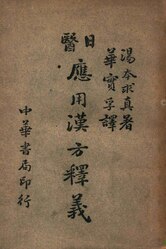 湯本求真著
華實孚譯
日醫應用漢方釋義
中華書局印行